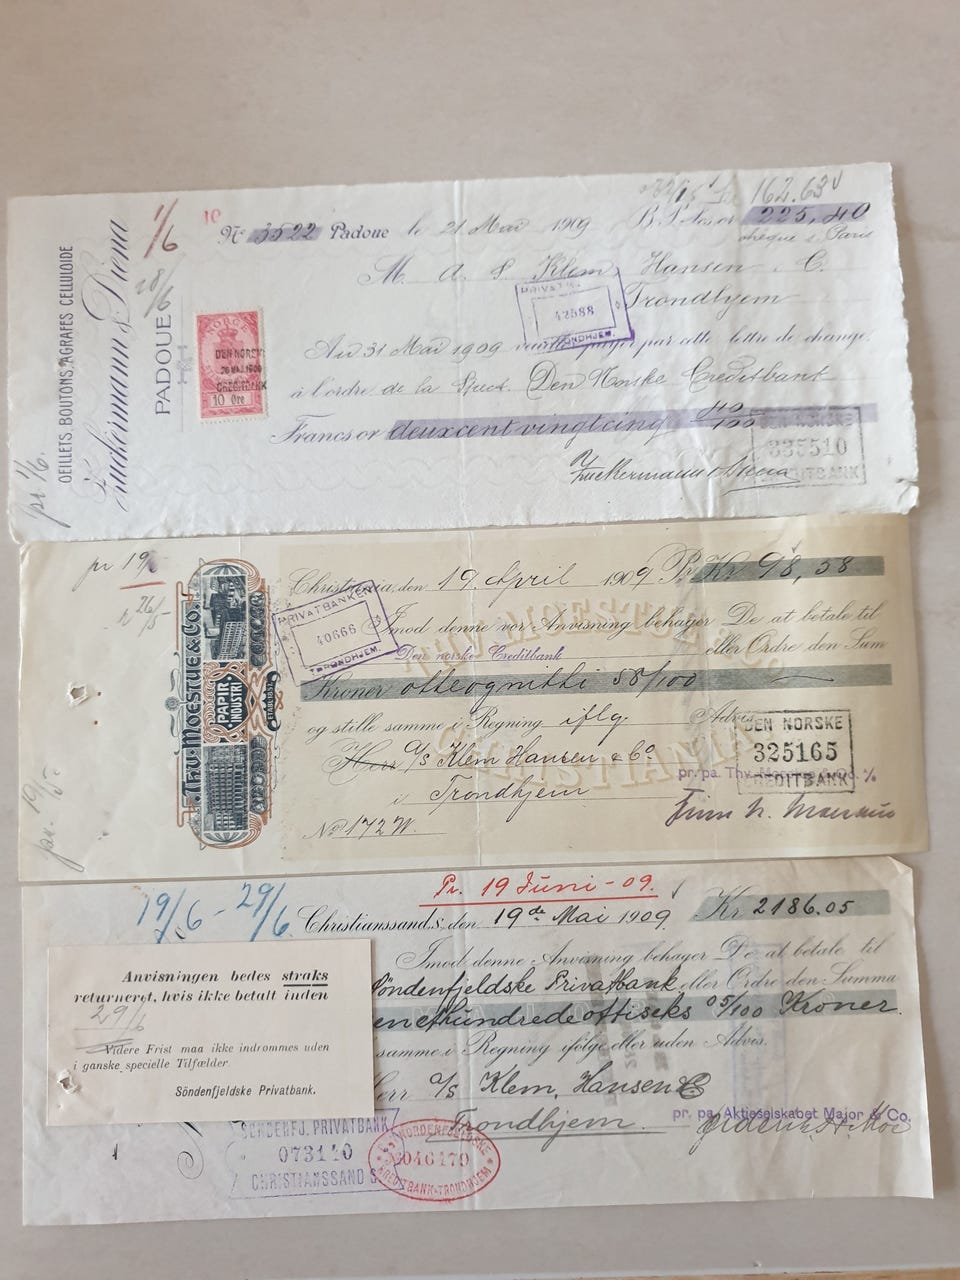 162.63
No 3522 Padoue le 21 Mai 1909 B. P. frs or 225,40
chèque s. Paris
M. A. S. Klem, Hansen & C.
Trondhjem
PRIVATB
42588
TRONDHJEM.
Au 31 Mai 1909 veuillez payer par cette lettre de change
à l'ordre de la Société Den Norske Creditbank
Francs or deuxcent vingtcinq 40/100
Zuckermann & Diena
DEN NORSKE
325510
CREDITBANK
OEILLETS, BOUTONS, AGRAFES CELLULOIDE
Zuckermann & Diena
PADOUE
1/6
28/6
pr 1/6.
10
NORGE
DEN NORSKE
26 MAJ 1909
CREDITBANK
10 Øre
pr 19/5
26/5
Christiania, den 19. April 1909 Pr. Kr. 98,58
Imod denne vor Anvisning behager De at betale til
Den norske Creditbank eller Ordre den Sum
Kroner otteognitti 58/100
og stille samme i Regning iflg. Advis.
Herr A/S Klem Hansen & Co.
i Trondhjem
No 172 W.
PRIVATBANKEN
40666
TRONDHJEM.
THV. MOESTUE & CO.
CHRISTIANIA
THV. MOESTUE & CO.
PAPIR-
INDUSTRI
ETABLISSEMENT
DEN NORSKE
325165
CREDITBANK
pr. pa. Thv. Moestue & Co. A/S
Pr. 19 Juni - 09.
19/6 - 29/6
Christianssand S., den 19de Mai 1909 Kr 2186.05
Imod denne Anvisning behager De at betale til
Söndenfjeldske Privatbank eller Ordre den Summa
en ethundrede ottiseks 05/100 Kroner.
samme i Regning ifølge eller uden Advis.
Herr A/S Klem, Hansen & C
Trondhjem.
pr. pa. Aktieselskabet Major & Co.
Anvisningen bedes straks
returneret, hvis ikke betalt inden
29/6
Videre Frist maa ikke indrømmes uden
i ganske specielle Tilfælder.
Söndenfjeldske Privatbank.
SÖNDENFJ. PRIVATBANK
073140
CHRISTIANSSAND S
NORDENFJELDSKE
No 046170
KREDITBANK-TRONDHJEM